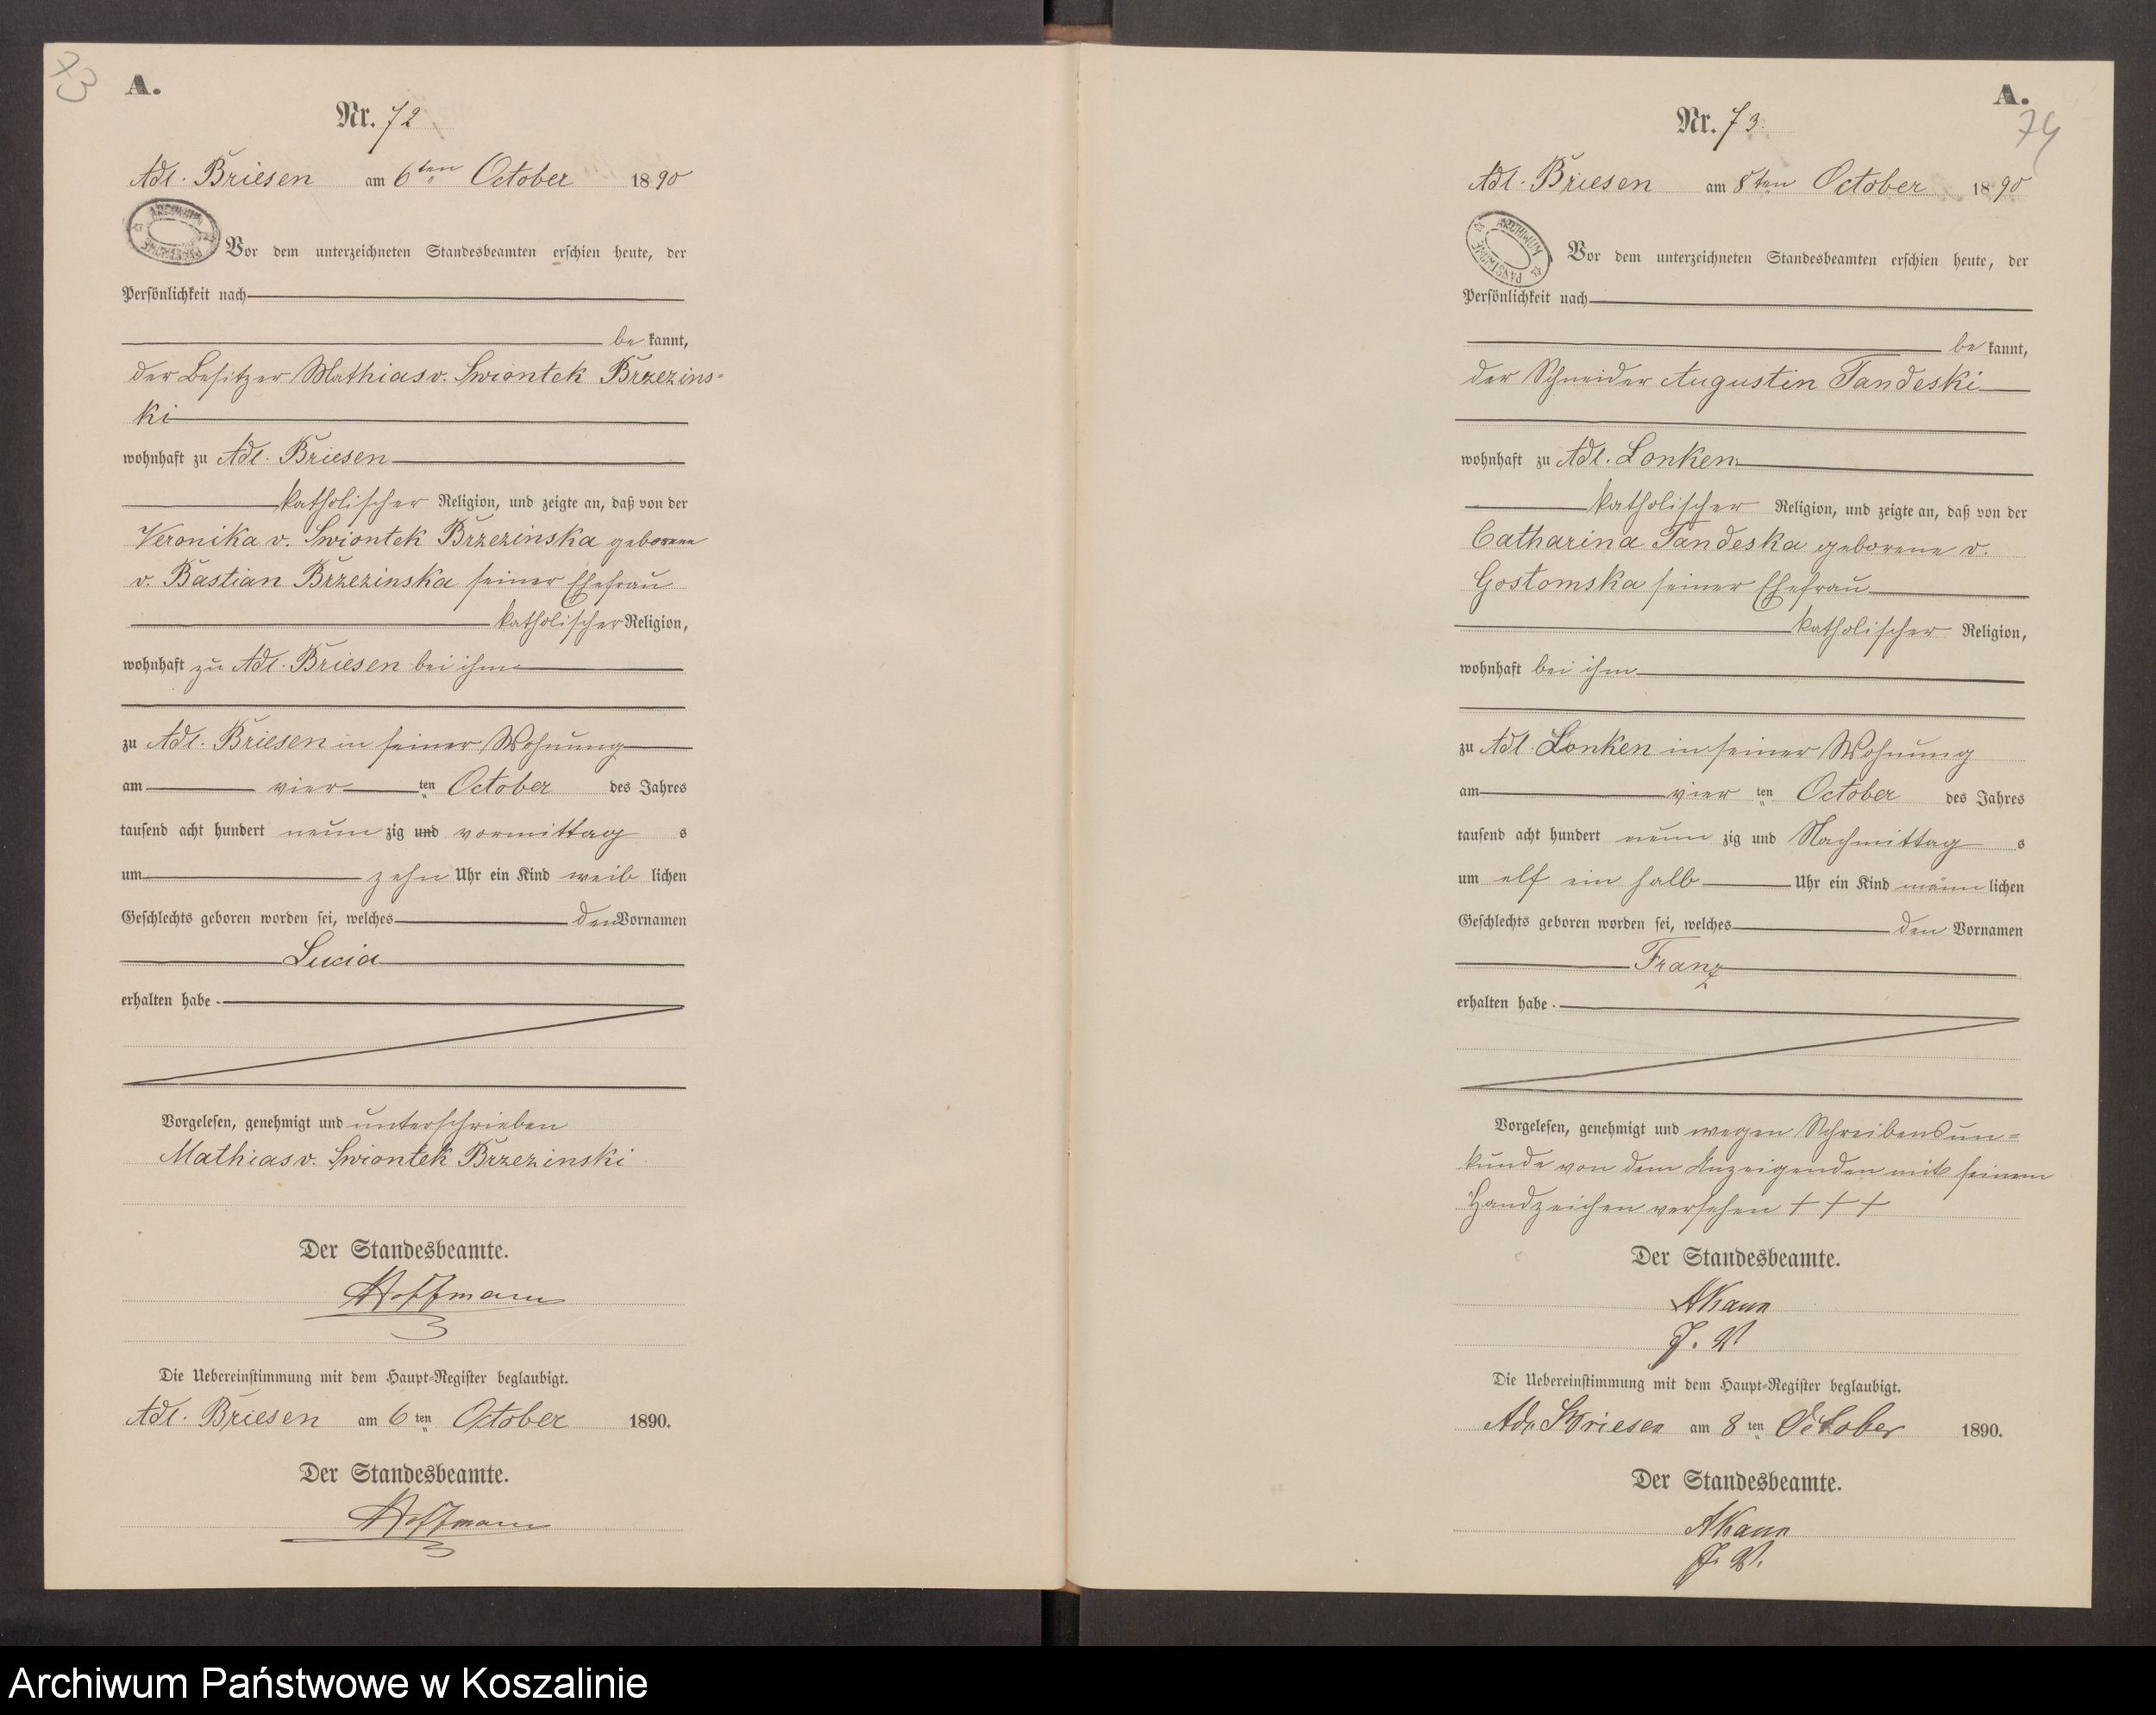 73
A.
Nr. 72
Adl. Briesen am 6ten October 1890
ARCHIWUM PAŃSTWOWE
Vor dem unterzeichneten Standesbeamten erschien heute, der
Persönlichkeit nach
be kannt,
der Besitzer Mathias v. Swiontek Brzezins-
ki
wohnhaft zu Adl. Briesen
katholischer Religion, und zeigte an, daß von der
Veronika v. Swiontek Brzezinska geborene
v. Bastian Brzezinska seiner Ehefrau
katholischer Religion,
wohnhaft zu Adl. Briesen bei ihm
zu Adl. Briesen in seiner Wohnung
am vier ten October des Jahres
tausend acht hundert neun zig und vormittag s
um zehn Uhr ein Kind weib lichen
Geschlechts geboren worden sei, welches den Vornamen
Lucia
erhalten habe.
Vorgelesen, genehmigt und unterschrieben
Mathias v. Swiontek Brzezinski
Der Standesbeamte.
Hoffmann
Die Uebereinstimmung mit dem Haupt-Register beglaubigt.
Adl. Briesen am 6 ten October 1890.
Der Standesbeamte.
Hoffmann
A.
74
Nr. 73.
Adl. Briesen am 8ten October 1890
ARCHIWUM PAŃSTWOWE
Vor dem unterzeichneten Standesbeamten erschien heute, der
Persönlichkeit nach
be kannt,
der Schneider Augustin Tandeski
wohnhaft zu Adl. Lonken
katholischer Religion, und zeigte an, daß von der
Catharina Tandeska geborene v.
Gostomska seiner Ehefrau
katholischer Religion,
wohnhaft bei ihm
zu Adl. Lonken in seiner Wohnung
am vier ten October des Jahres
tausend acht hundert neun zig und Nachmittag s
um elf ein halb Uhr ein Kind männ lichen
Geschlechts geboren worden sei, welches den Vornamen
Franz
erhalten habe.
Vorgelesen, genehmigt und wegen Schreibensun-
kunde von dem Anzeigenden mit seinem
Handzeichen versehen + + +
Der Standesbeamte.
J. V.
Die Uebereinstimmung mit dem Haupt-Register beglaubigt.
Adl. Briesen am 8 ten October 1890.
Der Standesbeamte.
J. V.
Archiwum Państwowe w Koszalinie